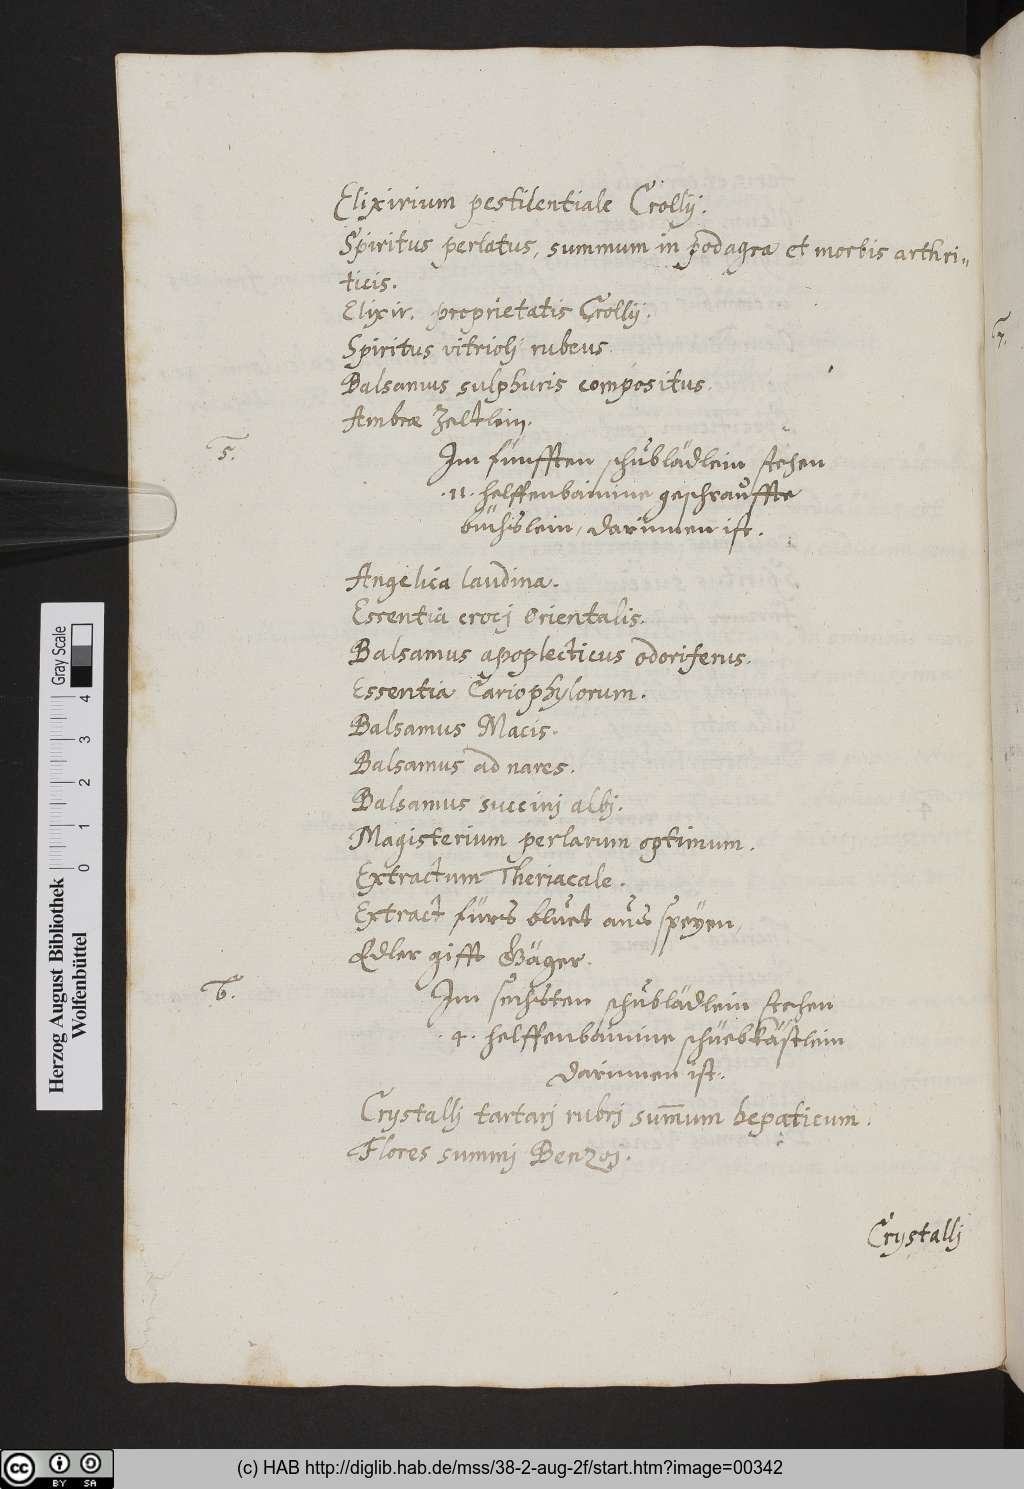 Elixirium pestilentiale Crollij.
Spiritus perlatus, summum in podagra et morbis arthri=
ticis.
Elixir. proprietatis Crollij.
Spiritus vitriolj rubeus.
Balsamus sulphuris compositus.
Ambræ Zeltlin.
5.
Im fünfften schüblädlein stehen
.11. helffenbainine geschrauffte
büchslein, darinnen ist.
Angelica laudina.
Essentia crocj Orientalis.
Balsamus apoplecticus odoriferus.
Essentia Cariophylorum.
Balsamus Macis.
Balsamus ad nares.
Balsamus succinj albj.
Magisterium perlarum optimum.
Extractum Theriacale.
Extract fürs bluet auß speyen.
Edler gifft
6.
Im sechsten schüblädlein stehen
.4. helffenbainine schuebkästlein
darinnen ist.
Crystallj tartarj rubrj sum̅um hepaticum.
Flores summj Benzoj.
Crystallj
7.
Herzog August Bibliothek
Wolfenbüttel
Gray Scale
0 1 2 3 4
cc BY SA
(c) HAB http://diglib.hab.de/mss/38-2-aug-2f/start.htm?image=00342